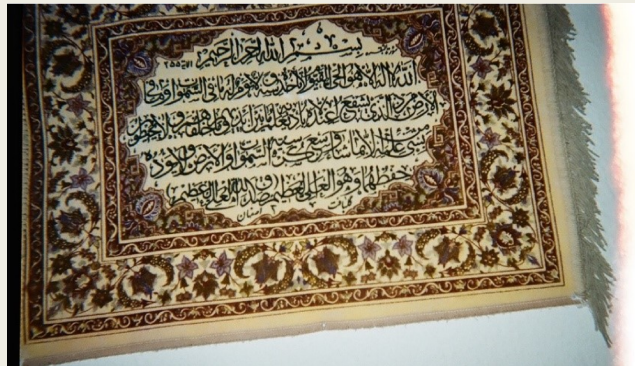 بسم الله الرحمن الرحيم الآية ٢٥٥
الله لا إله إلا هو الحي القيوم لا تأخذه سنة ولا نوم له ما في السموات وما في
الأرض من ذا الذي يشفع عنده إلا بإذنه يعلم ما بين أيديهم وما خلفهم ولا يحيطون
بشيء من علمه إلا بما شاء وسع كرسيه السموات والأرض ولا يؤده
حفظهما وهو العلي العظيم صدق الله العلي العظيم